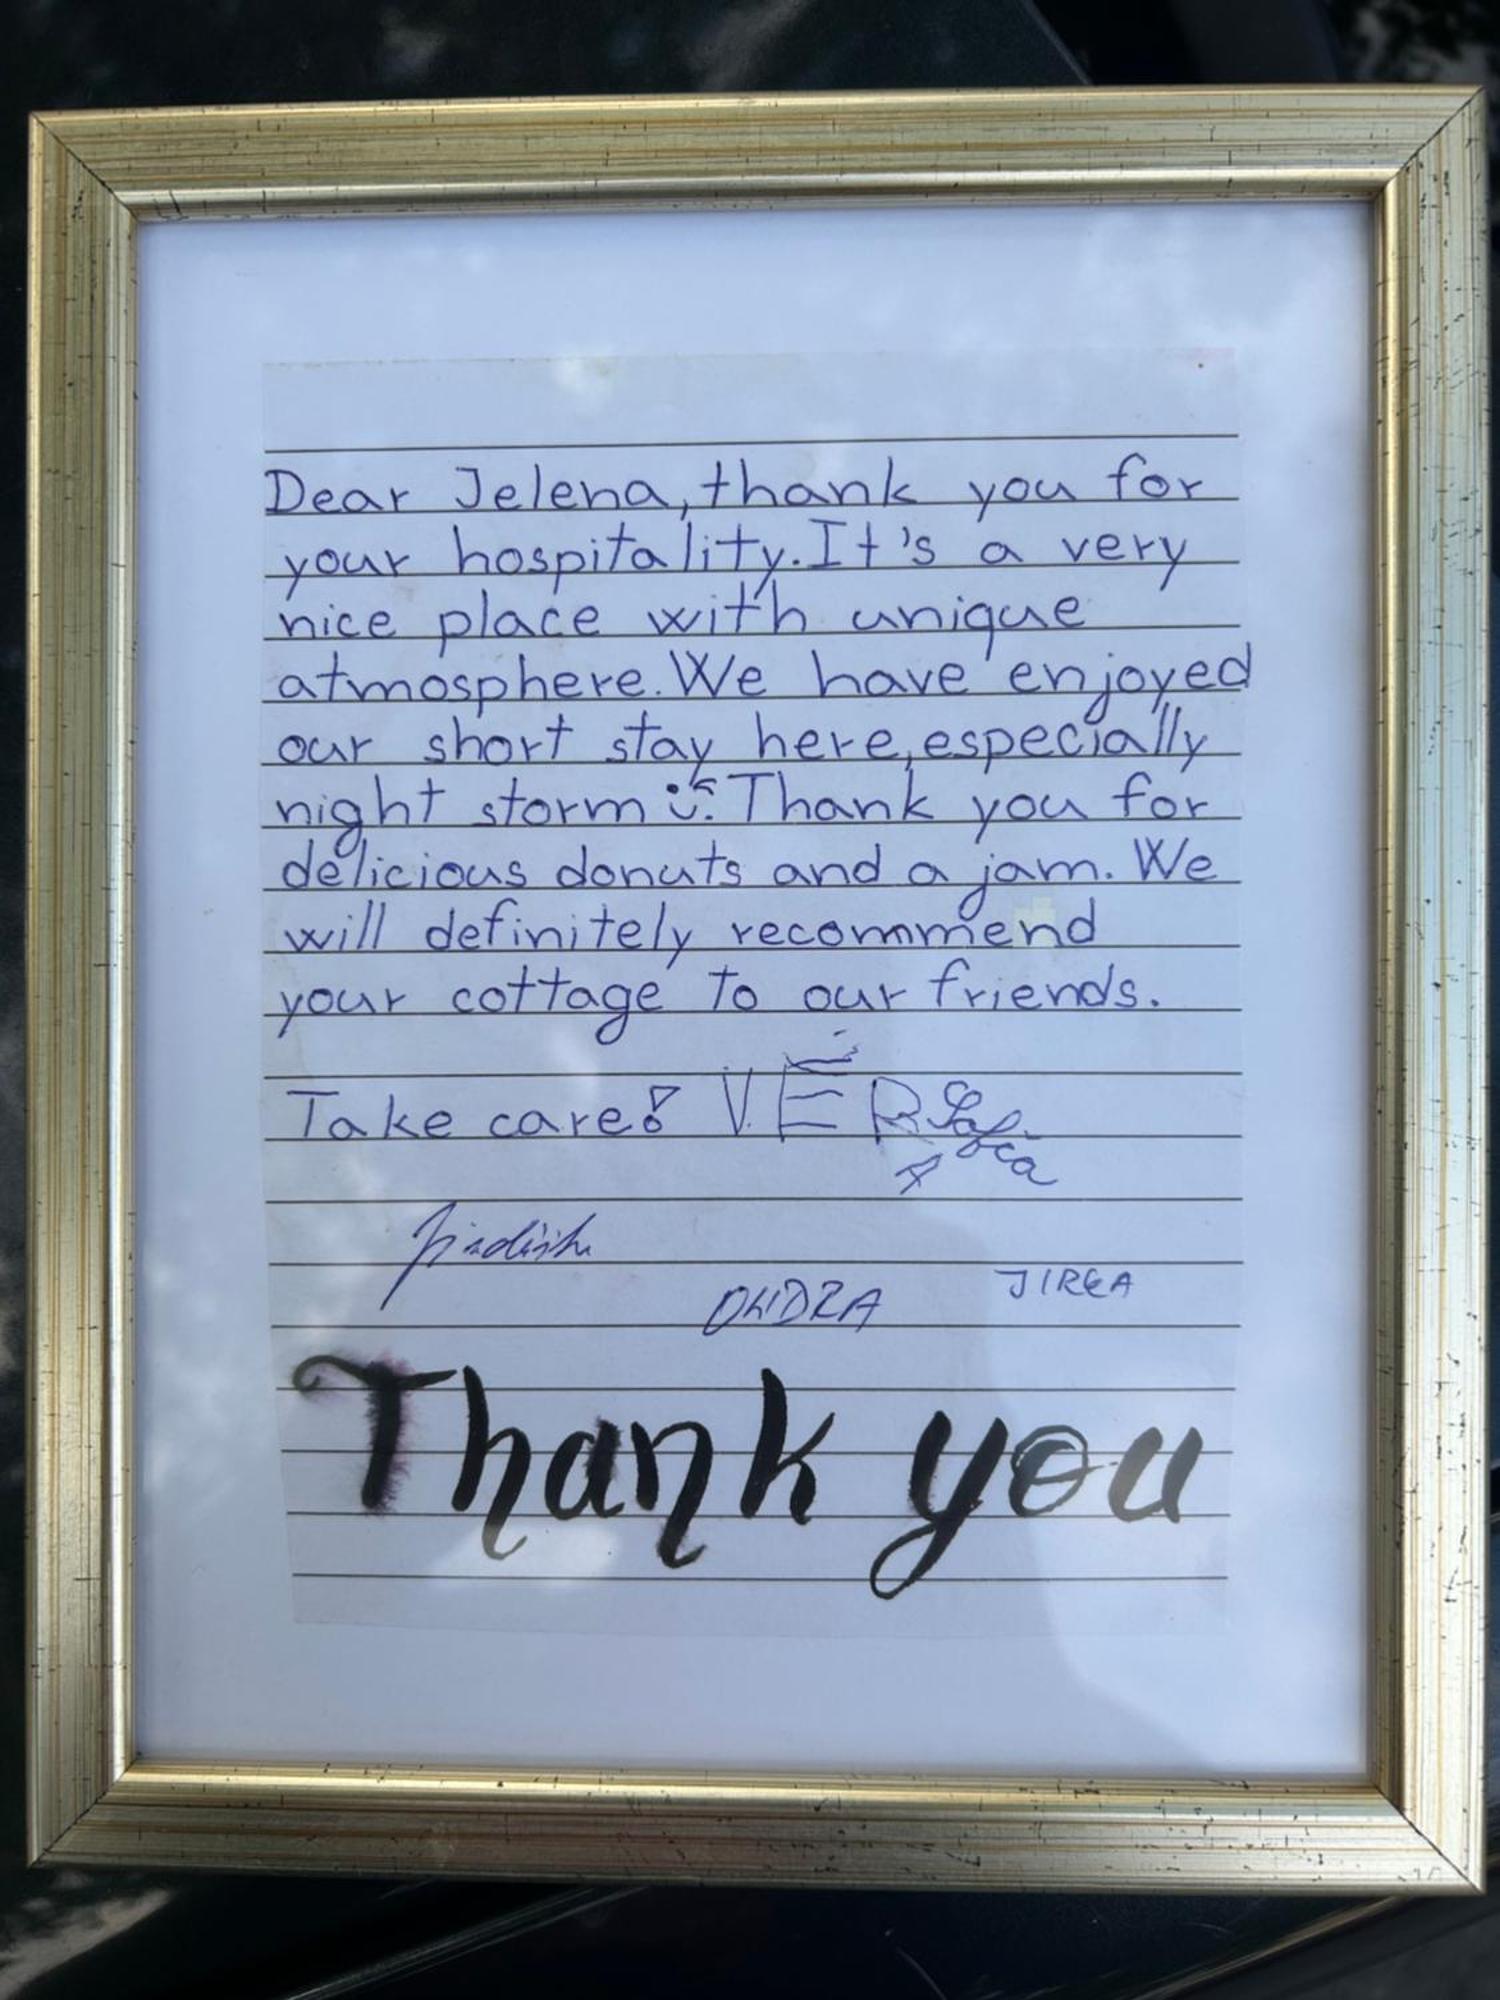 Dear Jelena, thank you for
your hospitality. It's a very
nice place with unique
atmosphere. We have enjoyed
our short stay here, especially
night storm :). Thank you for
delicious donuts and a jam. We
will definitely recommend
your cottage to our friends.
Take care! VĚRA Sofia
JIRKA
Thank you